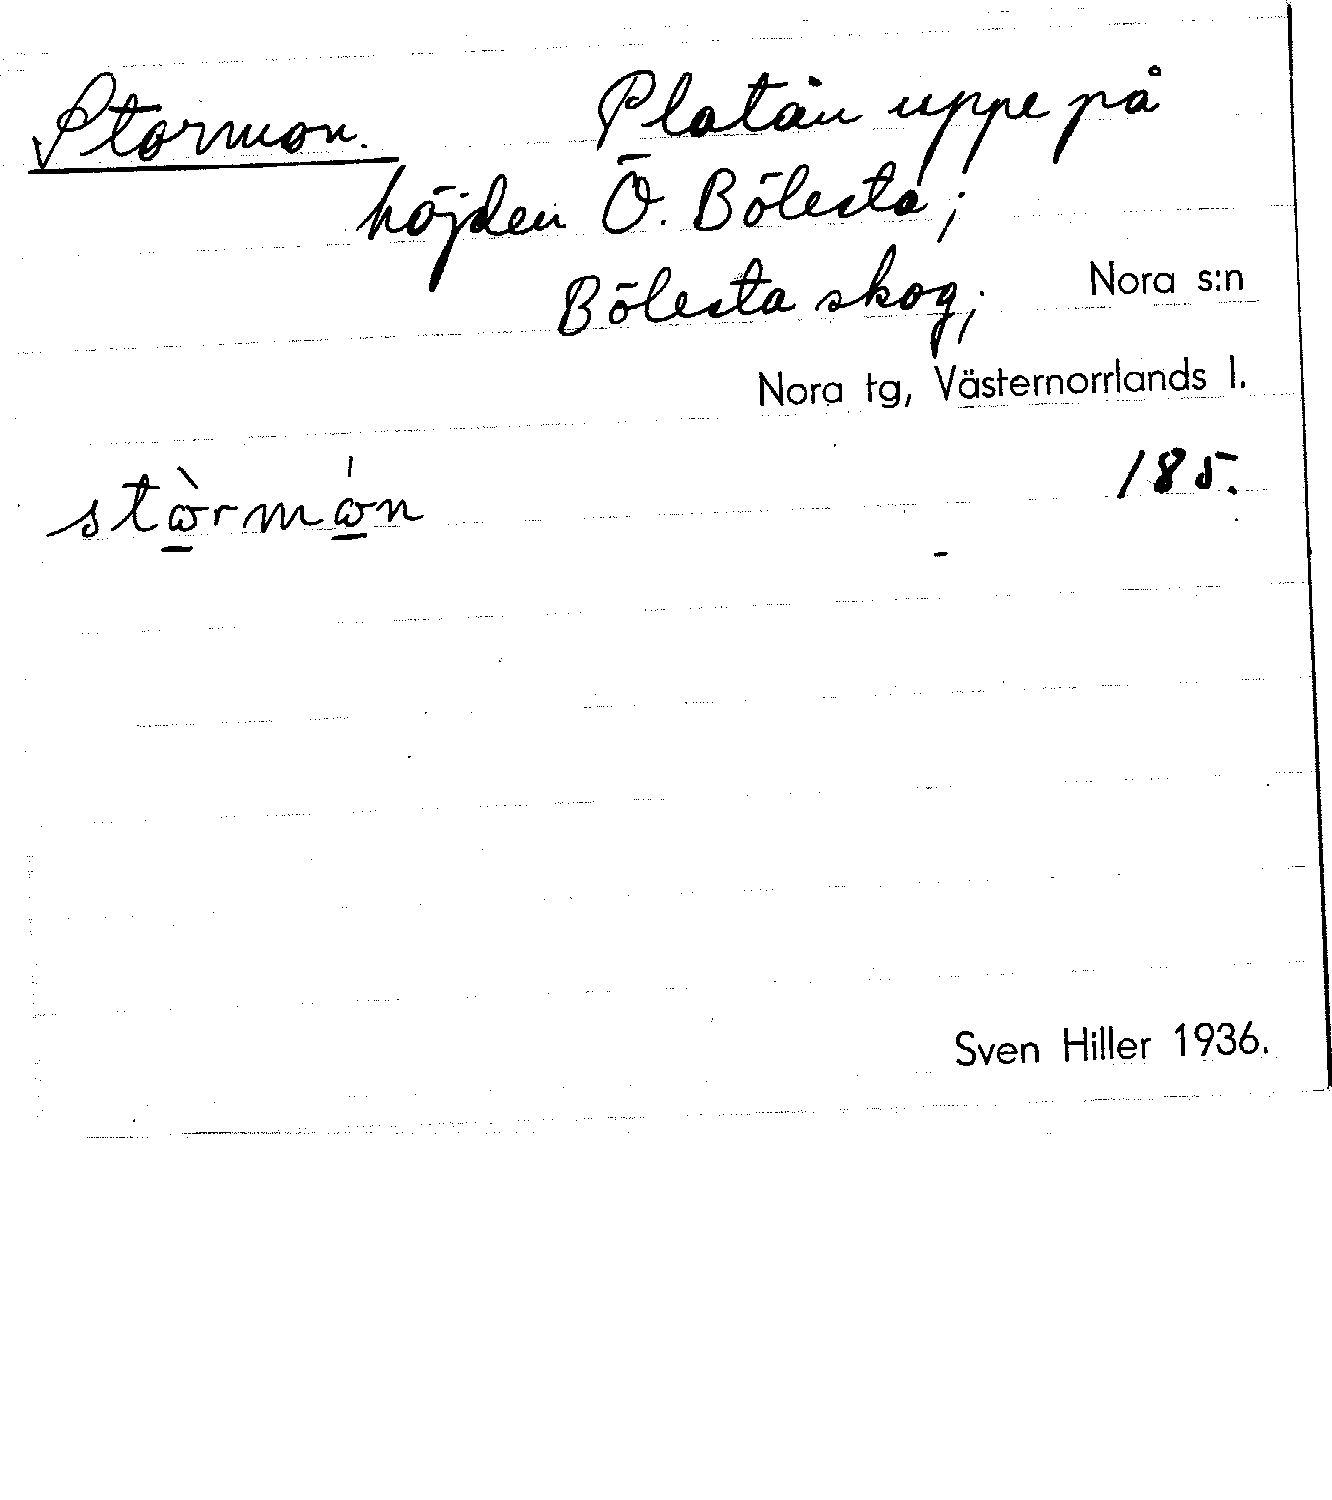 Stormon. Platån uppe på
höjden Ö. Bölesta;
Bölesta skog; Nora s:n
Nora tg, Västernorrlands l.
stὼ̲rmώ̲n 185.
Sven Hiller 1936.